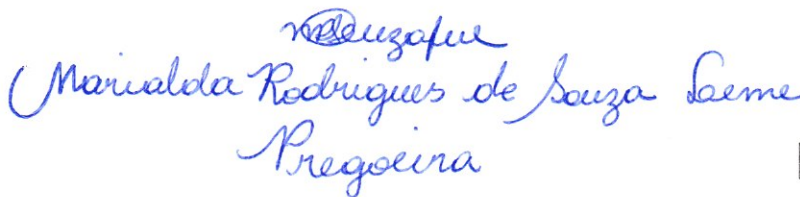 Marialda Rodrigues de Souza
Pregoeira